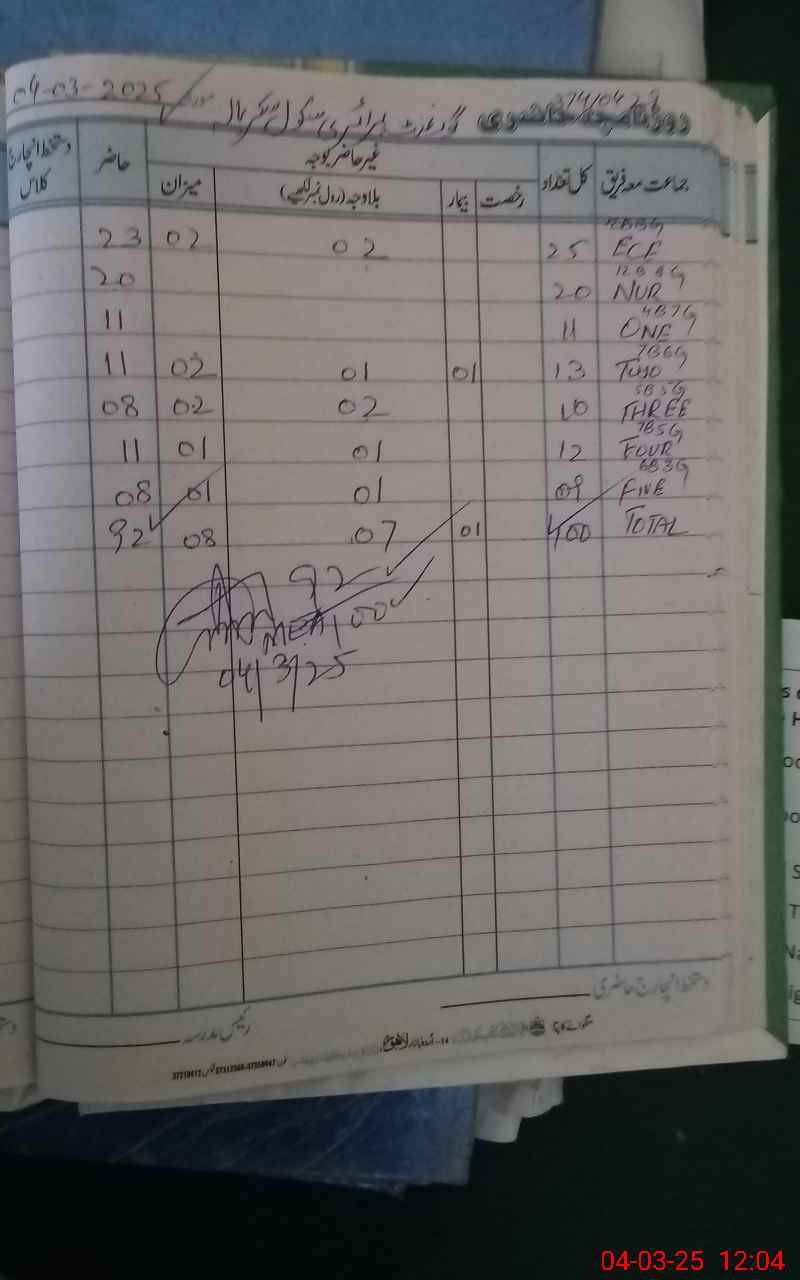 روزنامچہ حاضری گورنمنٹ پرائمری سکول مورخہ 04-03-2025
37410428
جماعت معہ فریق کل تعداد غیر حاضر بوجہ حاضر دستخط انچارج کلاس
رخصت بیمار بلاوجہ (رول نمبر لکھیے) میزان
12B13G
ECE 25 02 02 23
12B8G
NUR 20 20
4B7G
ONE 11 11
7B6G
TWO 13 01 01 02 11
5B5G
THREE 10 02 02 08
7B5G
FOUR 12 01 01 11
6B3G
FIVE 09 01 01 08
TOTAL 100 01 07 08 92
92
MEA 100
04/3/25
دستخط انچارج حاضری
رئیس مدرسہ
لاہور
04-03-25 12:04